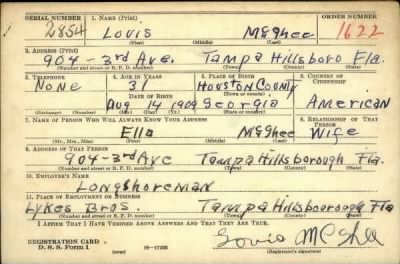 SERIAL NUMBER 1. NAME (Print) ORDER NUMBER
2854 Lovis McGhee 1622
(First) (Middle) (Last)
2. ADDRESS (Print)
904-3rd Ave. Tampa Hillsboro Fla.
(Number and street or R. F. D. number) (Town) (County) (State)
3. TELEPHONE 4. AGE IN YEARS 5. PLACE OF BIRTH 6. COUNTRY OF CITIZENSHIP
None 31 Houston County
DATE OF BIRTH
Aug 14 1909 Georgia American
(Exchange) (Number) (Mo.) (Day) (Yr.) (State or country)
7. NAME OF PERSON WHO WILL ALWAYS KNOW YOUR ADDRESS 8. RELATIONSHIP OF THAT PERSON
Ella McGhee Wife
(Mr., Mrs., Miss) (First) (Middle) (Last)
9. ADDRESS OF THAT PERSON
904-3rd Ave Tampa Hillsborough Fla.
(Number and street or R. F. D. number) (Town) (County) (State)
10. EMPLOYER'S NAME
Longshoreman
11. PLACE OF EMPLOYMENT OR BUSINESS
Lykes Bros. Tampa Hillsboorough Fla
(Number and street or R. F. D. number) (Town) (County) (State)
I AFFIRM THAT I HAVE VERIFIED ABOVE ANSWERS AND THAT THEY ARE TRUE.
REGISTRATION CARD
D. S. S. Form 1 (over) 16—17105 Lovis McGhee
(Registrant's signature)